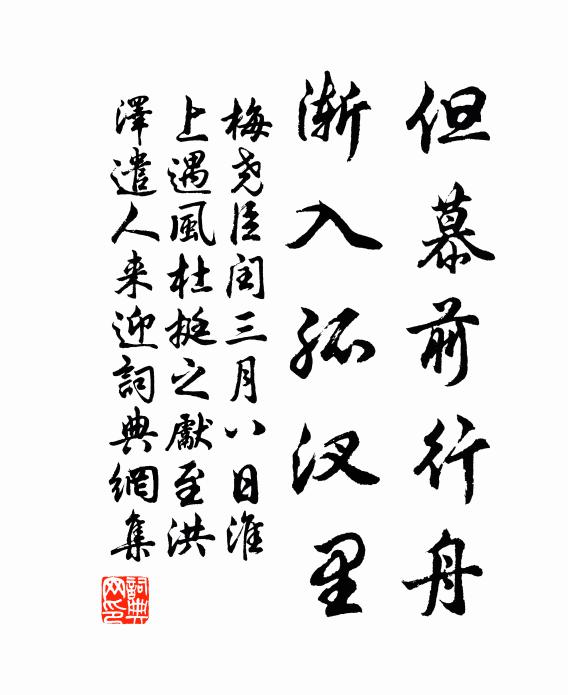 但慕前行舟
渐入孤汊里
梅尧臣闰三月八日淮
上遇風杜挺之獻至洪
澤遣人来迎詞典網集
詞典
网印